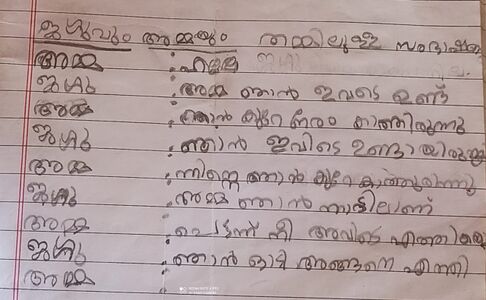 ജശുവും അമ്മയും തമ്മിലുള്ള സംഭാഷണം
അമ്മ : എല്ലാ ജശു
ജശു : അമ്മ ഞാൻ ഇവടെ ഉണ്ട്
അമ്മ : ഞാൻ കുറേ നേരം കാത്തിരുന്നു
ജശു : ഞാൻ ഇവിടെ ഉണ്ടായിരുന്നു
അമ്മ : നിന്നെ ഞാൻ കുറേ കാത്തുരുന്നു
ജശു : അമ്മ ഞാൻ നാട്ടിലാണ്
അമ്മ : പെട്ടന്ന് നീ അവിടെ എത്തി
ജശു : ഞാൻ ഓടി അങ്ങനെ എത്തി
അമ്മ :